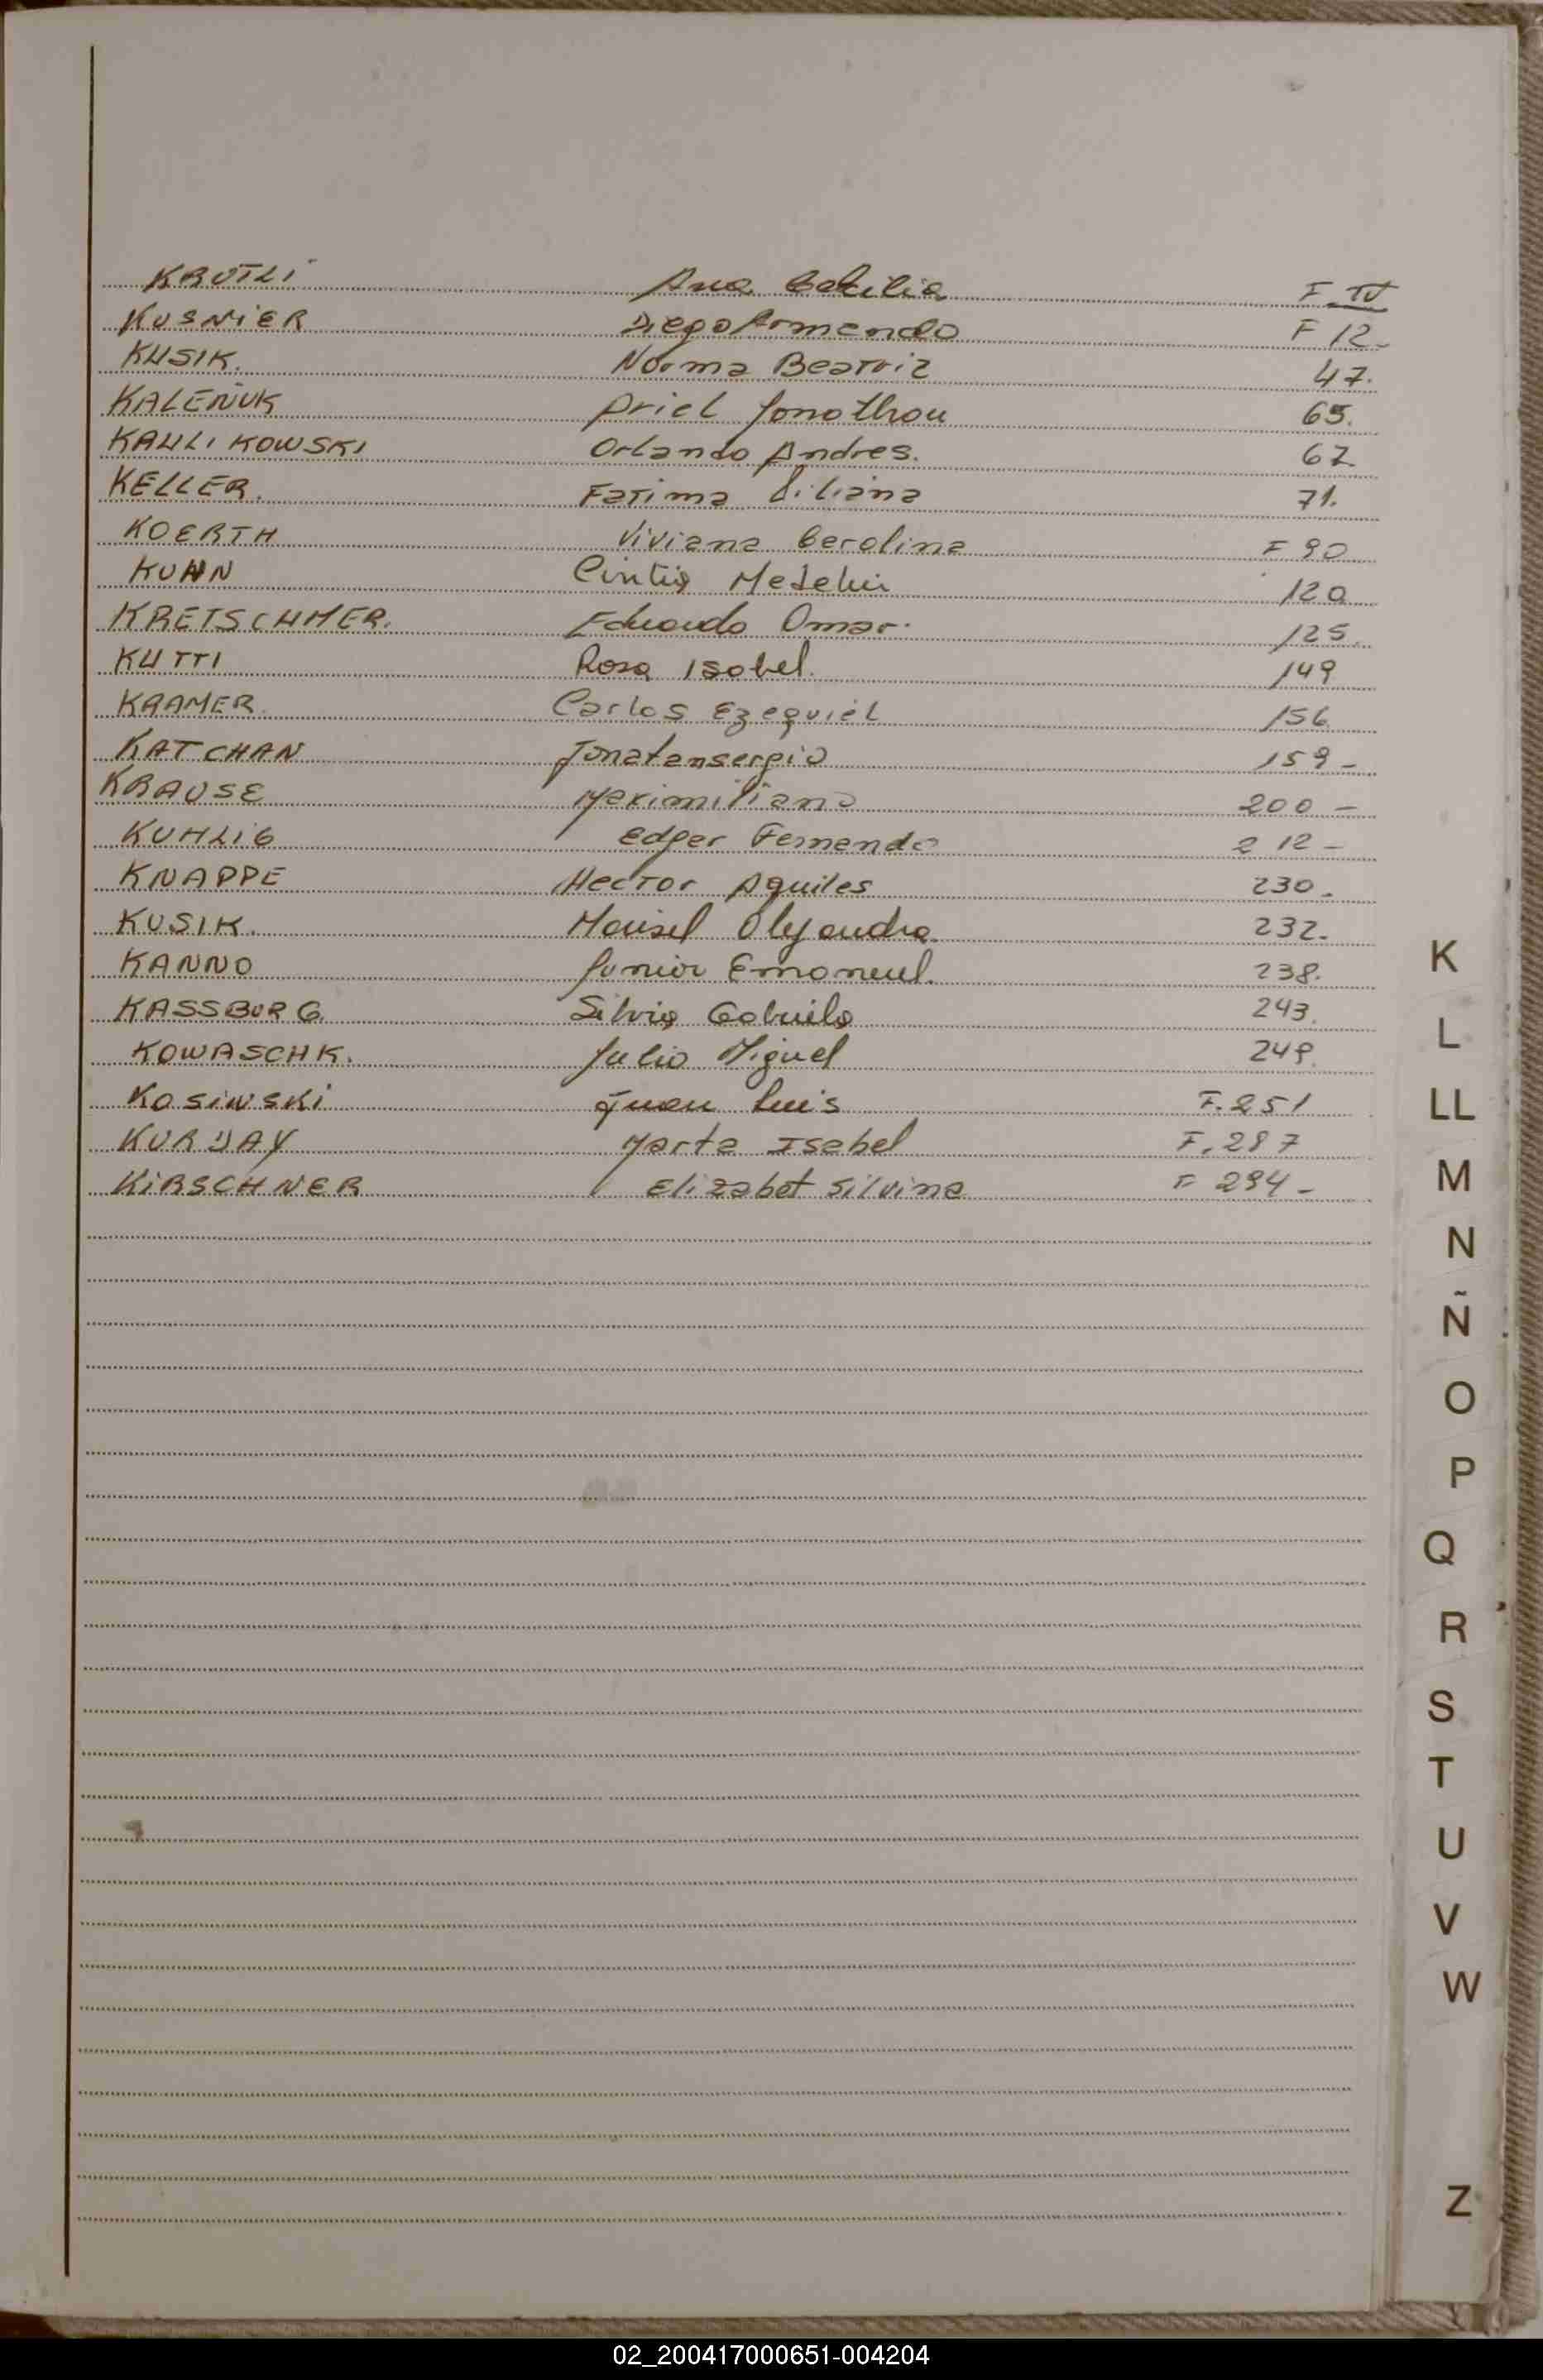 KRÜTLI Ana Cecilia F. IV
KUSNiER Diego Armando F 12-
KUSIK. Norma Beatriz 47.
KALEÑUK Ariel Jonathan 65.
KAULIKOWSKI Orlando Andres. 67.
KELLER. Fatima Liliana 71.
KOERTH Viviana Carolina F 90
KUHN Cintia 120
KRETSCHMER. Eduardo Omar. 125.
KUTTI Rosa Isabel. 149
KRAMER. Carlos Ezequiel 156.
KATCHAN Jonatansergio 159-
KRAUSE Maximiliano 200-
KUHLiG Edger Fernando 212-
KNAPPE Hector Aquiles 230.
KUSIK. Marisel Alejandra. 232.
KANNO Junior Emanuel. 238.
KASSBURG. Silvia Gabriela 243.
KOWASCHK. Julio Miguel 249.
KOSiNSKi Juan Luis F. 251
Marta Isabel F. 287
KiRSCHNER Elizabet Silvina F 294-
K
L
LL
M
N
Ñ
O
P
Q
R
S
T
U
V
W
Z
02_200417000651-004204